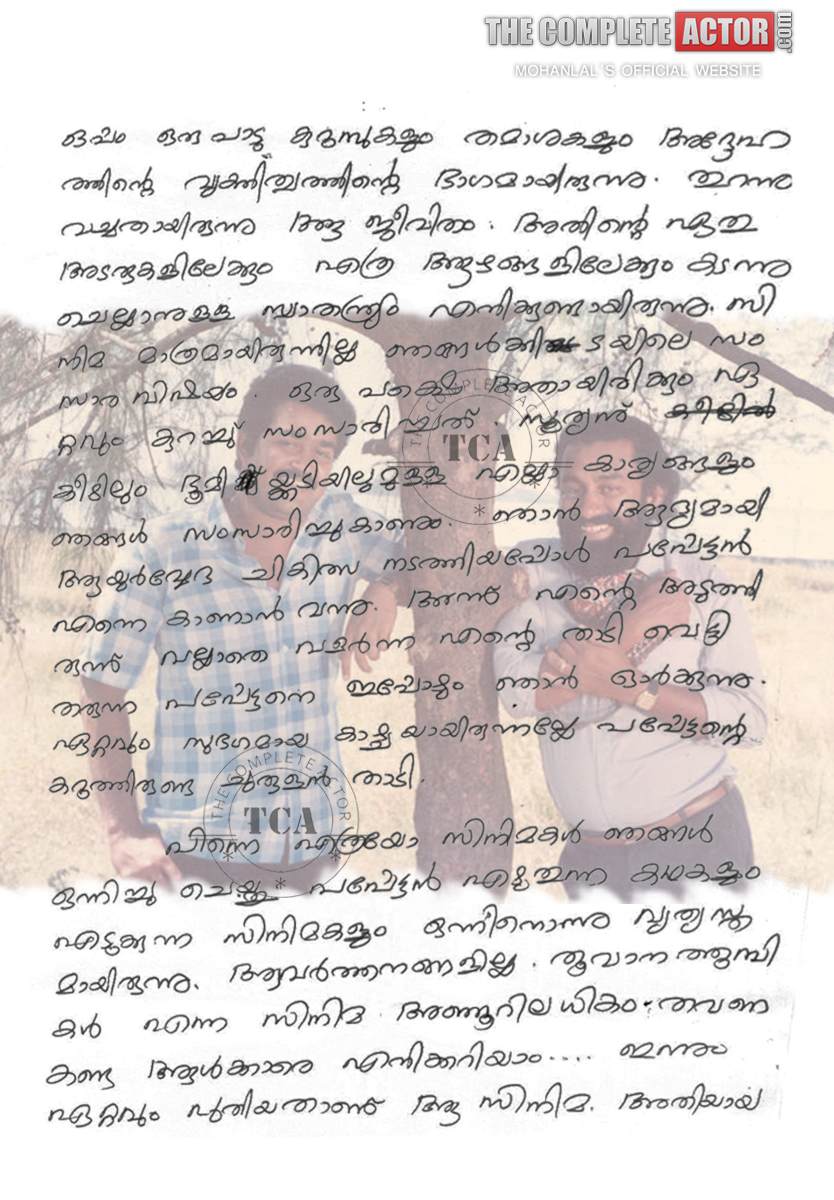 THE COMPLETE ACTOR.com
MOHANLAL'S OFFICIAL WEBSITE
ഒപ്പം ഒരുപാടു കുറുമ്പുകളും തമാശകളും അദ്ദേഹ
ത്തിന്റെ വ്യക്തിത്വത്തിന്റെ ഭാഗമായിരുന്നു. തുറന്നു
വച്ചതായിരുന്നു ആ ജീവിതം. അതിന്റെ ഏതു
അടരുകളിലേക്കും എത്ര ആഴങ്ങളിലേക്കും കടന്നു
ചെല്ലാനുള്ള സ്വാതന്ത്ര്യം എനിക്കുണ്ടായിരുന്നു. സി
നിമ മാത്രമായിരുന്നില്ല ഞങ്ങൾക്കിടയിലെ സം
സാര വിഷയം. ഒരു പക്ഷെ അതായിരിക്കും ഏ
റ്റവും കുറച്ച് സംസാരിച്ചത്. സൂര്യന്
കീഴിലും ഭൂമിയ്ക്കടിയിലുമുള്ള എല്ലാ കാര്യങ്ങളും
ഞങ്ങൾ സംസാരിച്ചുകാണും. ഞാൻ ആദ്യമായി
ആയുർവ്വേദ ചികിത്സ നടത്തിയപ്പോൾ പപ്പേട്ടൻ
എന്നെ കാണാൻ വന്നു. അന്ന് എന്റെ അടുത്തി
രുന്ന് വല്ലാതെ വളർന്ന എന്റെ താടി വെട്ടി
തരുന്ന പപ്പേട്ടനെ ഇപ്പോഴും ഞാൻ ഓർക്കുന്നു.
ഏറ്റവും സുഭഗമായ കാഴ്ചയായിരുന്നല്ലോ പപ്പേട്ടന്റെ
കറുത്തിരുണ്ട ചുരുളൻ താടി.
THE COMPLETE ACTOR
TCA
THE COMPLETE ACTOR
TCA
പിന്നെ എത്രയോ സിനിമകൾ ഞങ്ങൾ
ഒന്നിച്ചു ചെയ്തു പപ്പേട്ടൻ എഴുതുന്ന കഥകളും
എടുക്കുന്ന സിനിമകളും ഒന്നിനൊന്നു വ്യത്യസ്ത
മായിരുന്നു. ആവർത്തനങ്ങളില്ല. തൂവാനത്തുമ്പി
കൾ എന്ന സിനിമ അഞ്ഞൂറിലധികം തവണ
കണ്ട ആൾക്കാരെ എനിക്കറിയാം.... ഇന്നും
ഏറ്റവും പുതിയതാണ് ആ സിനിമ. അതിയായ